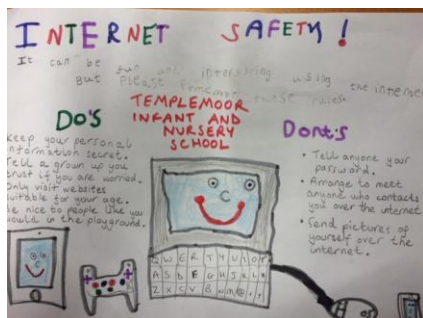 INTERNET SAFETY!
It can be fun and interesting using the internet
But please these rules.
TEMPLEMOOR
INFANT AND
NURSERY
SCHOOL
DO'S
Keep your personal
information secret.
Tell a grown up you
trust if you are worried.
Only visit websites
suitable for your age.
Be nice to people like you
would in the playground.
Dont's
• Tell anyone your
password.
• Arrange to meet
anyone who contacts
you over the internet
• Send pictures of
yourself over the
internet.
Q W E R T Y U I O P
A S D F G H J K L
Z X C V B N M @ . ,